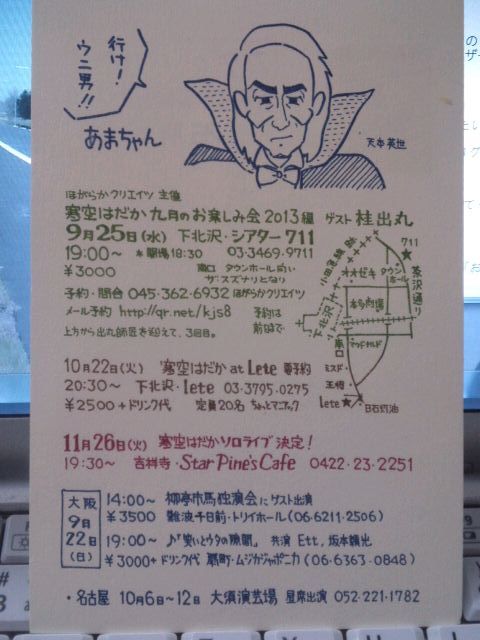 行け!
ウニ男!!
あまちゃん
天本英世
ほがらかクリエイツ 主催
寒空はだか 九月のお楽しみ会 2013編 ゲスト 桂出丸
9月25日(水) 下北沢・シアター711
19:00~ *開場18:30 03-3469-9711
¥3000 南口 タウンホール向い
ザ・スズナリとなり
予約・問合 045-362-6932 ほがらかクリエイツ
メール予約 http://qr.net/kjs8 予約は
前日まで
上方から出丸師匠を迎えて、3回目。
711
茶沢通り
小田急線
オオゼキ
タウンホール
本多劇場
下北沢
南口
マクドナルド
ミスド
王将
Lete★
日石灯油
10月22日(火) 寒空はだか at Lete 要予約
20:30~ 下北沢・Lete 03-3795-0275
¥2500+ドリンク代 定員20名 ちょっとマニアック
11月26日(火) 寒空はだかソロライブ 決定!
19:30~ 吉祥寺・Star Pine's Cafe 0422-23-2251
大阪
9月
22日
(日)
14:00~ 柳亭市馬独演会にゲスト出演
¥3500 難波千日前・トリイホール(06-6211-2506)
19:00~ ♪『笑いとウタの隙間』 共演 Ett, 坂本頼光
¥3000+ドリンク代 扇町・ムジカジャポニカ(06-6363-0848)
・名古屋 10月6日~12日 大須演芸場 昼席出演 052-221-1782